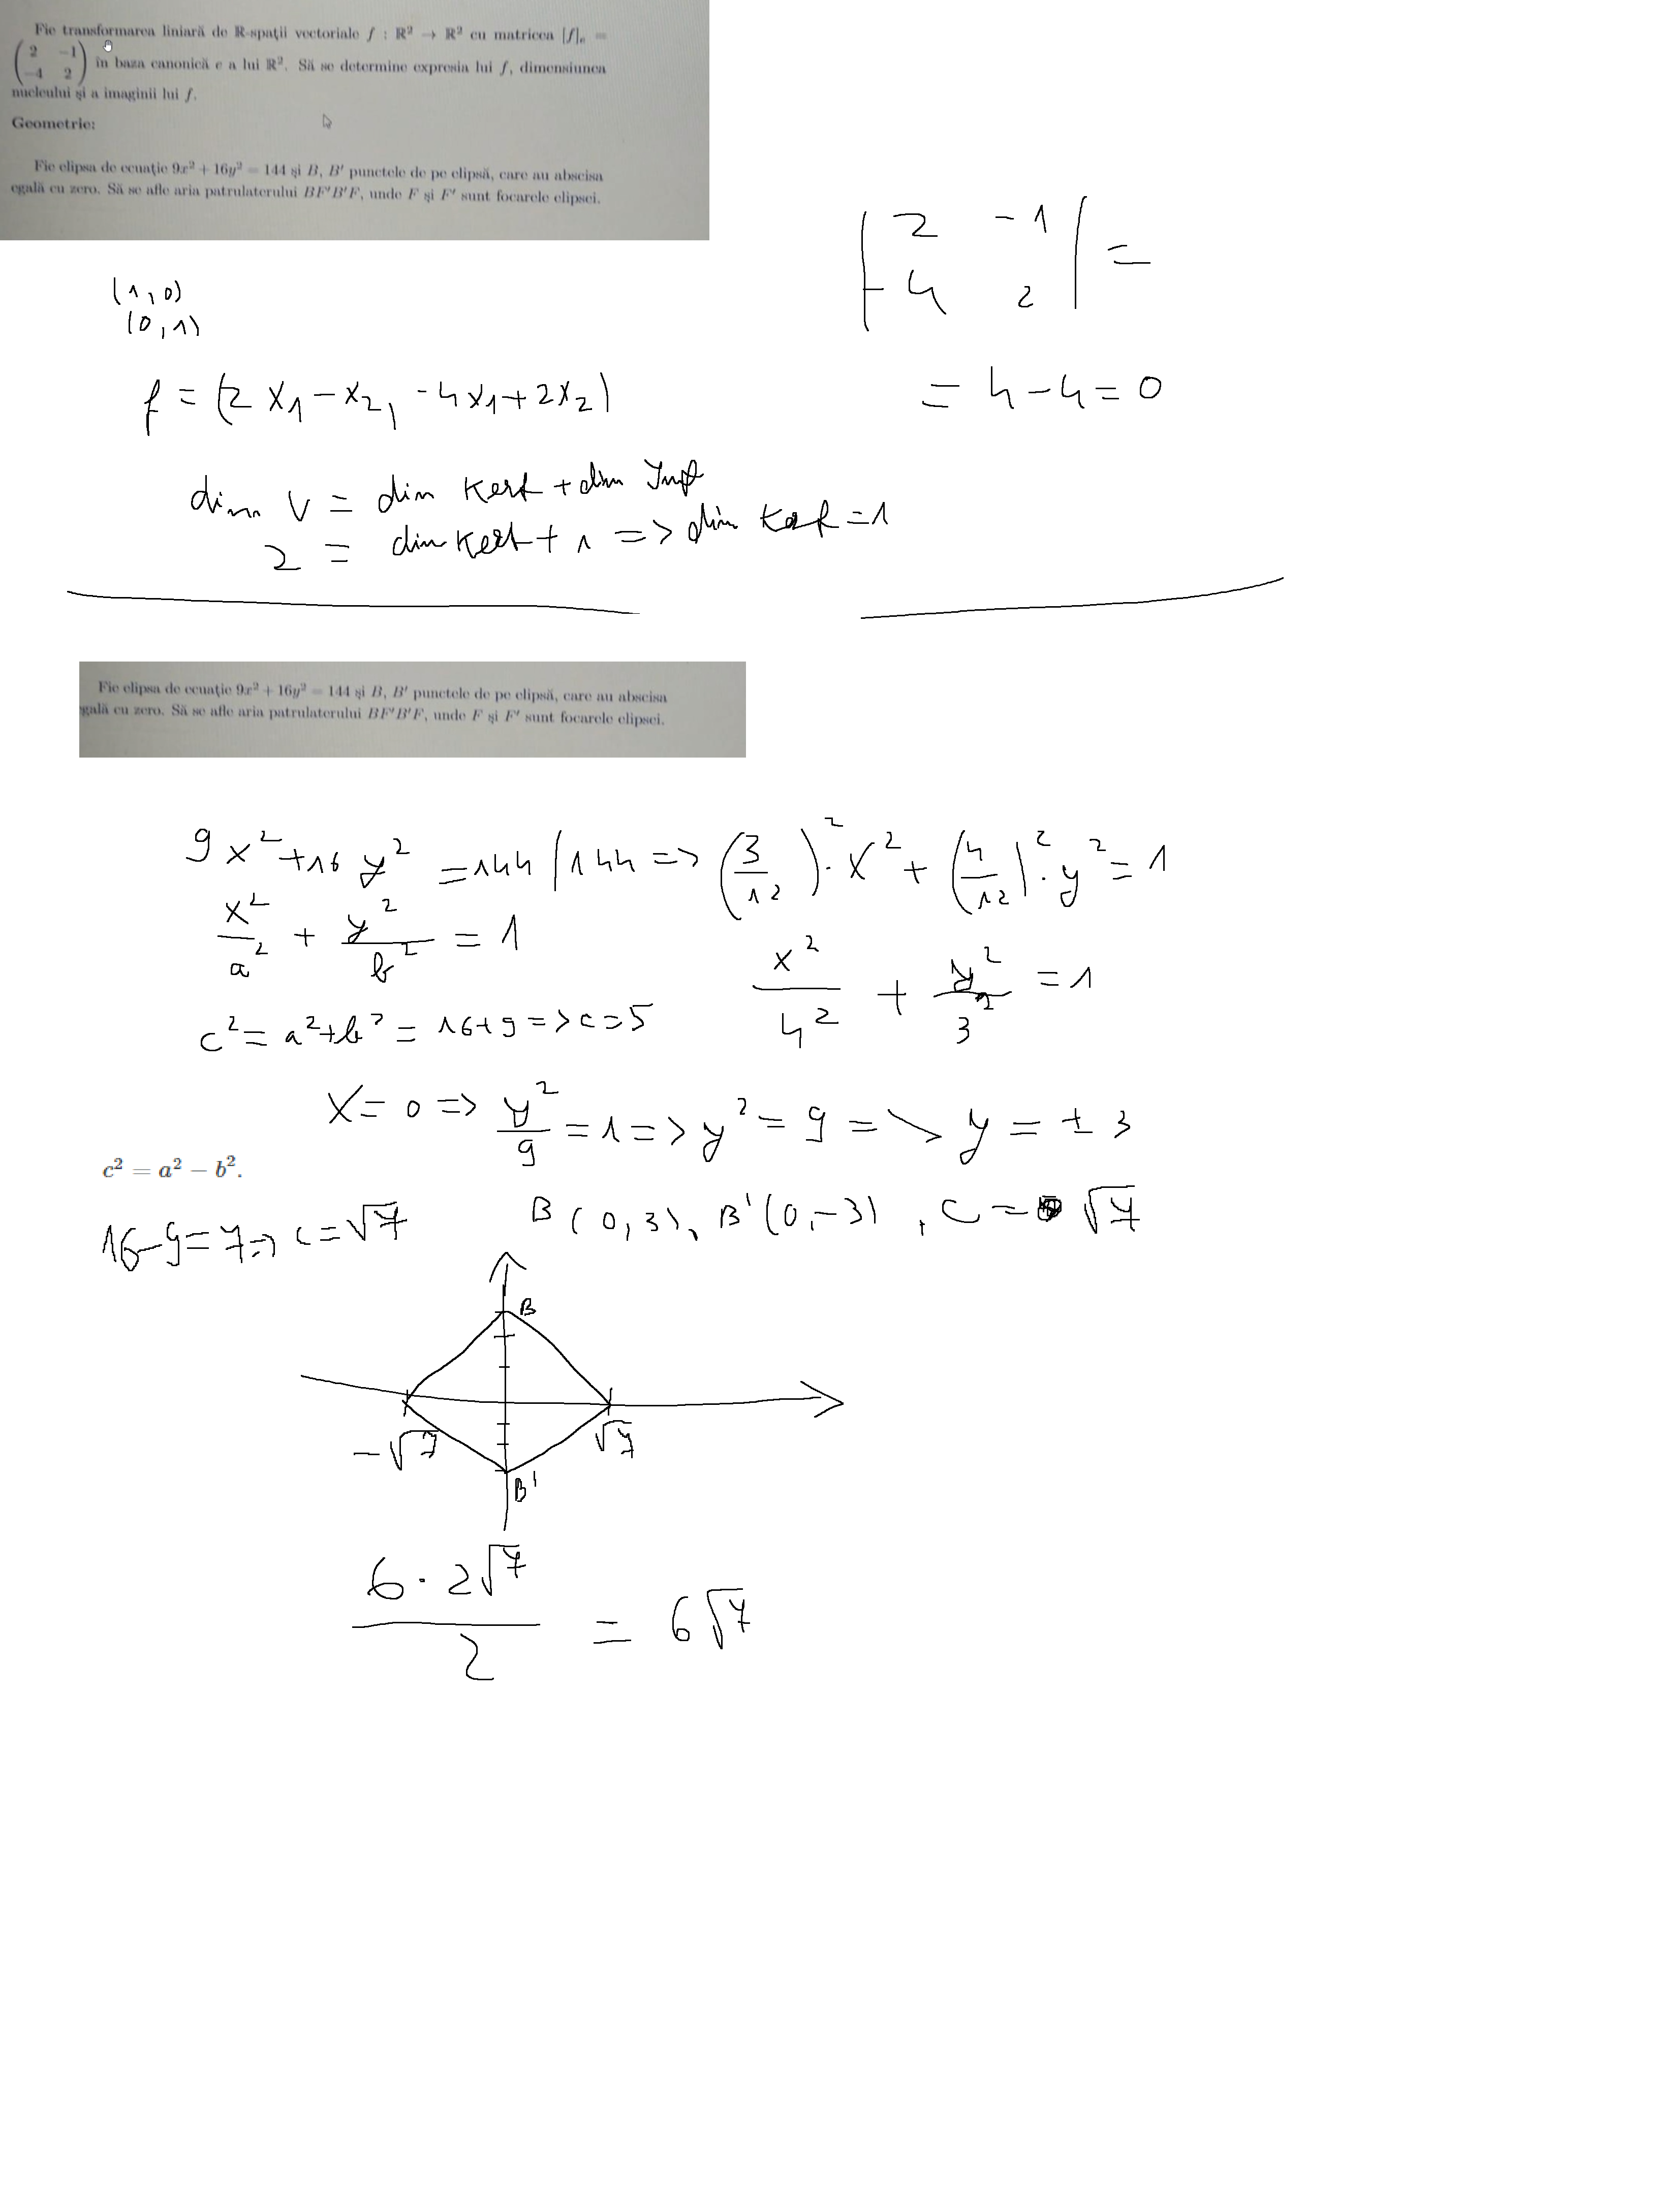 Fie transformarea liniară de ℝ-spații vectoriale f : ℝ² → ℝ² cu matricea [f]ₑ =
(2 -1
-4 2) în baza canonică e a lui ℝ². Să se determine expresia lui f, dimensiunea
nucleului și a imaginii lui f.
Geometrie:
Fie elipsa de ecuație 9x² + 16y² = 144 și B, B′ punctele de pe elipsă, care au abscisa
egală cu zero. Să se afle aria patrulaterului BF′B′F, unde F și F′ sunt focarele elipsei.
|2 -1
-4 2| =
= 4-4=0
(1,0)
(0,1)
f = (2x₁-x₂, -4x₁+2x₂)
dim V = dim Kerf + dim Imf
2 = dim Kerf + 1 => dim Kerf = 1
Fie elipsa de ecuație 9x² + 16y² = 144 și B, B′ punctele de pe elipsă, care au abscisa
gală cu zero. Să se afle aria patrulaterului BF′B′F, unde F și F′ sunt focarele elipsei.
9x²+16y² = 144 | 144 => (3/12)²·x² + (4/12)²·y² = 1
x²/a² + y²/b² = 1
x²/4² + y²/3² = 1
c² = a²+b² = 16+9 => c=5
x=0 => y²/9 = 1 => y² = 9 => y = ±3
c² = a² − b².
16-9=7=> c=√7
B(0,3), B'(0,-3), c = √7
B
-√7 √7
B'
6·2√7/2 = 6√7